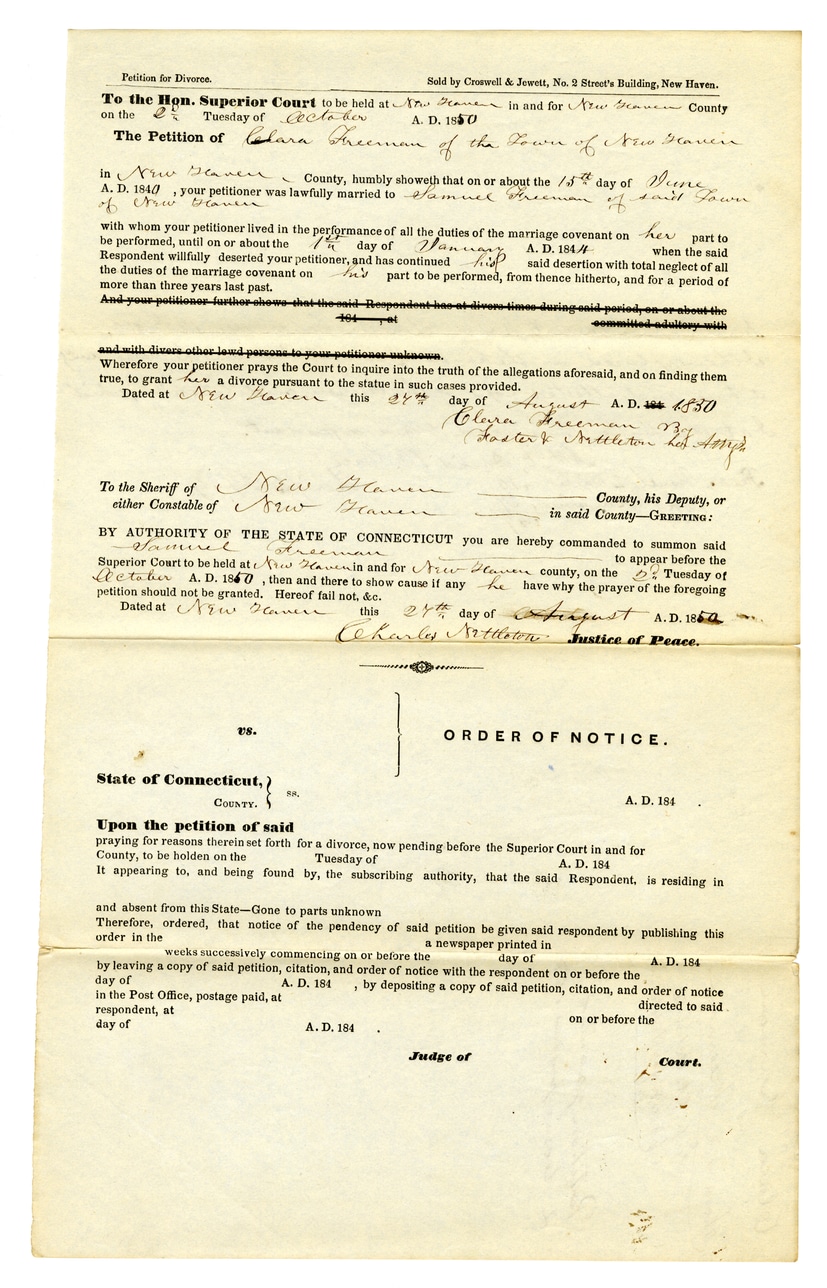 Petition for Divorce. Sold by Croswell & Jewett, No. 2 Street's Building, New Haven.
To the Hon. Superior Court to be held at New Haven in and for New Haven County
on the 2d Tuesday of October A. D. 1850
The Petition of Clara Freeman of the Town of New Haven
in New Haven County, humbly sheweth that on or about the 15th day of June
A. D. 1840, your petitioner was lawfully married to Samuel Freeman of said Town
of New Haven
with whom your petitioner lived in the performance of all the duties of the marriage covenant on her part to
be performed, until on or about the 1st day of January A. D. 1844 when the said
Respondent willfully deserted your petitioner, and has continued his said desertion with total neglect of all
the duties of the marriage covenant on his part to be performed, from thence hitherto, and for a period of
more than three years last past.
And your petitioner further shows that the said Respondent has at divers times during said period, on or about the
184 , at committed adultery with
and with divers other lewd persons to your petitioner unknown.
Wherefore your petitioner prays the Court to inquire into the truth of the allegations aforesaid, and on finding them
true, to grant her a divorce pursuant to the statue in such cases provided.
Dated at New Haven this 27th day of August A. D. 184 1850
Clara Freeman By
Foster & Nettleton her Attys
To the Sheriff of New Haven County, his Deputy, or
either Constable of New Haven in said County—GREETING:
BY AUTHORITY OF THE STATE OF CONNECTICUT you are hereby commanded to summon said
Samuel Freeman to appear before the
Superior Court to be held at New Haven in and for New Haven county, on the 2d Tuesday of
October A. D. 1850, then and there to show cause if any he have why the prayer of the foregoing
petition should not be granted. Hereof fail not, &c.
Dated at New Haven this 27th day of August A. D. 1850
Charles Nettleton Justice of Peace.
vs. ORDER OF NOTICE.
State of Connecticut,
COUNTY. ss. A. D. 184 .
Upon the petition of said
praying for reasons therein set forth for a divorce, now pending before the Superior Court in and for
County, to be holden on the Tuesday of A. D. 184
It appearing to, and being found by, the subscribing authority, that the said Respondent, is residing in
and absent from this State—Gone to parts unknown
Therefore, ordered, that notice of the pendency of said petition be given said respondent by publishing this
order in the a newspaper printed in
weeks successively commencing on or before the day of A. D. 184
by leaving a copy of said petition, citation, and order of notice with the respondent on or before the
day of A. D. 184 , by depositing a copy of said petition, citation, and order of notice
in the Post Office, postage paid, at directed to said
respondent, at on or before the
day of A. D. 184 .
Judge of Court.